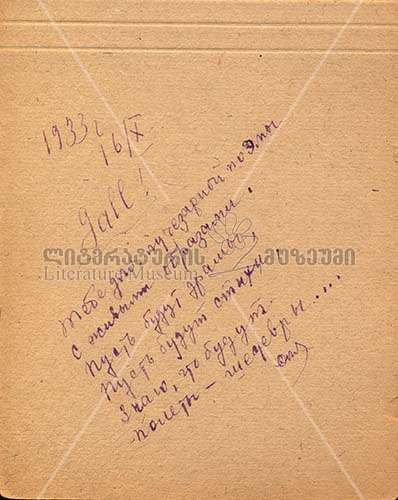 1933 г
16/X
Gall!
Тебе для лучезарной поэмы
с живыми образами.
Пусть будут Храмы,
Пусть будут стихи,
Знаю, что будут.
полеты – шедевры....
ლიტერატურის მუზეუმი
Literature Museum